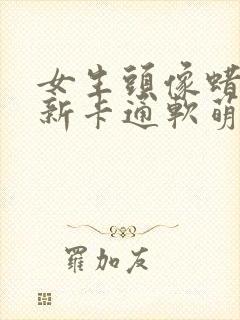 女生頭像蜡
新卡通軟萌
羅加友